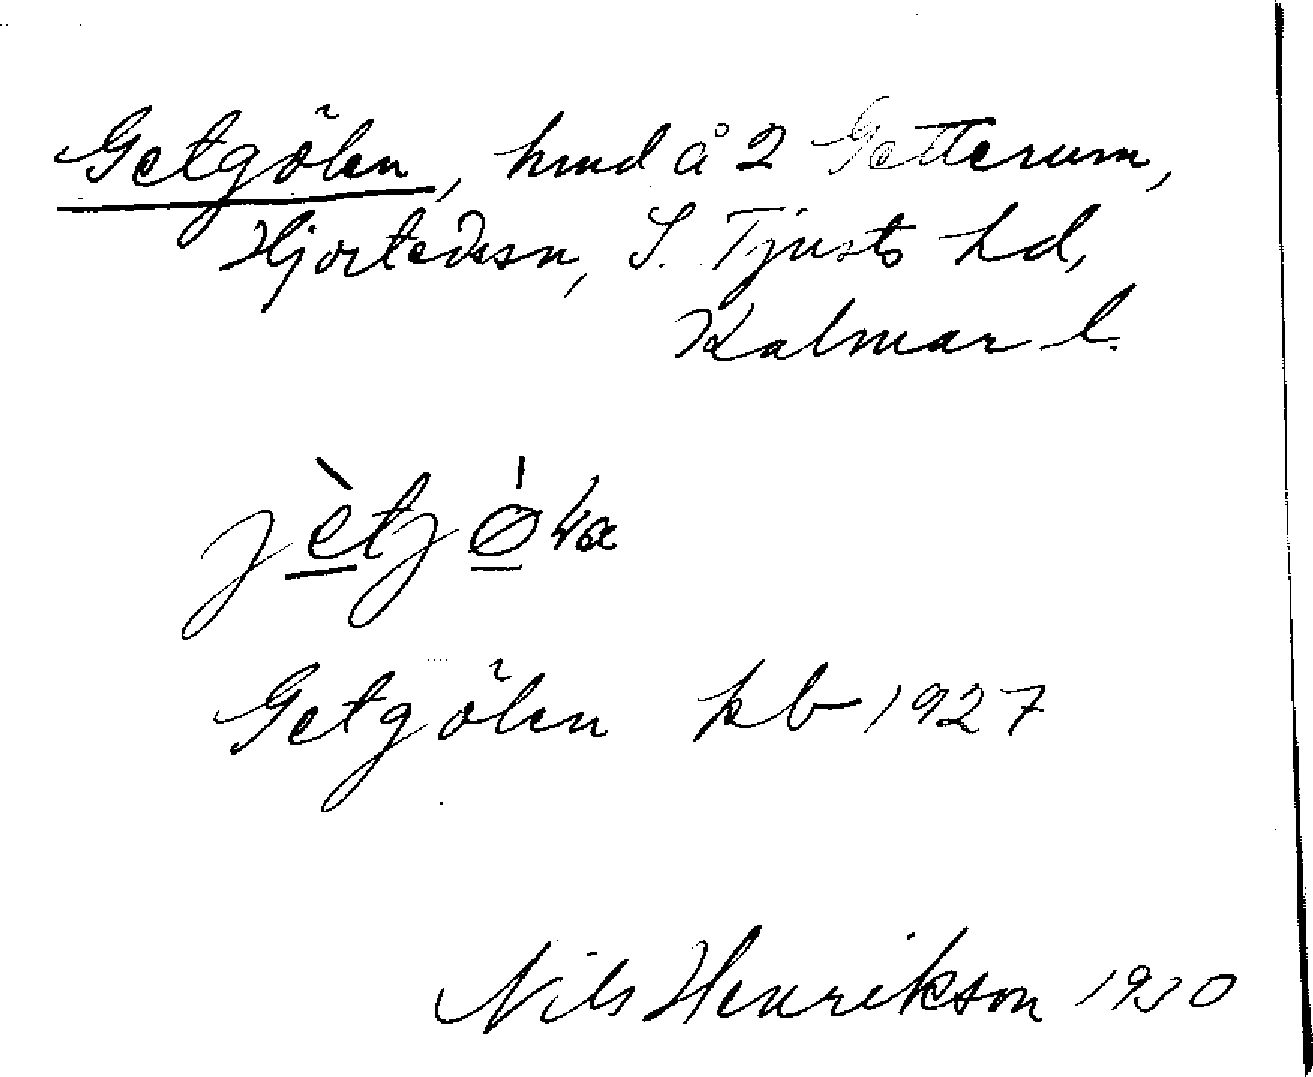 Getgölen, hmd å 2 Getterum,
Hjorteds sn, S. Tjusts hd,
Kalmar l.
Getgölen kb 1927
Nils Henrikson 1930